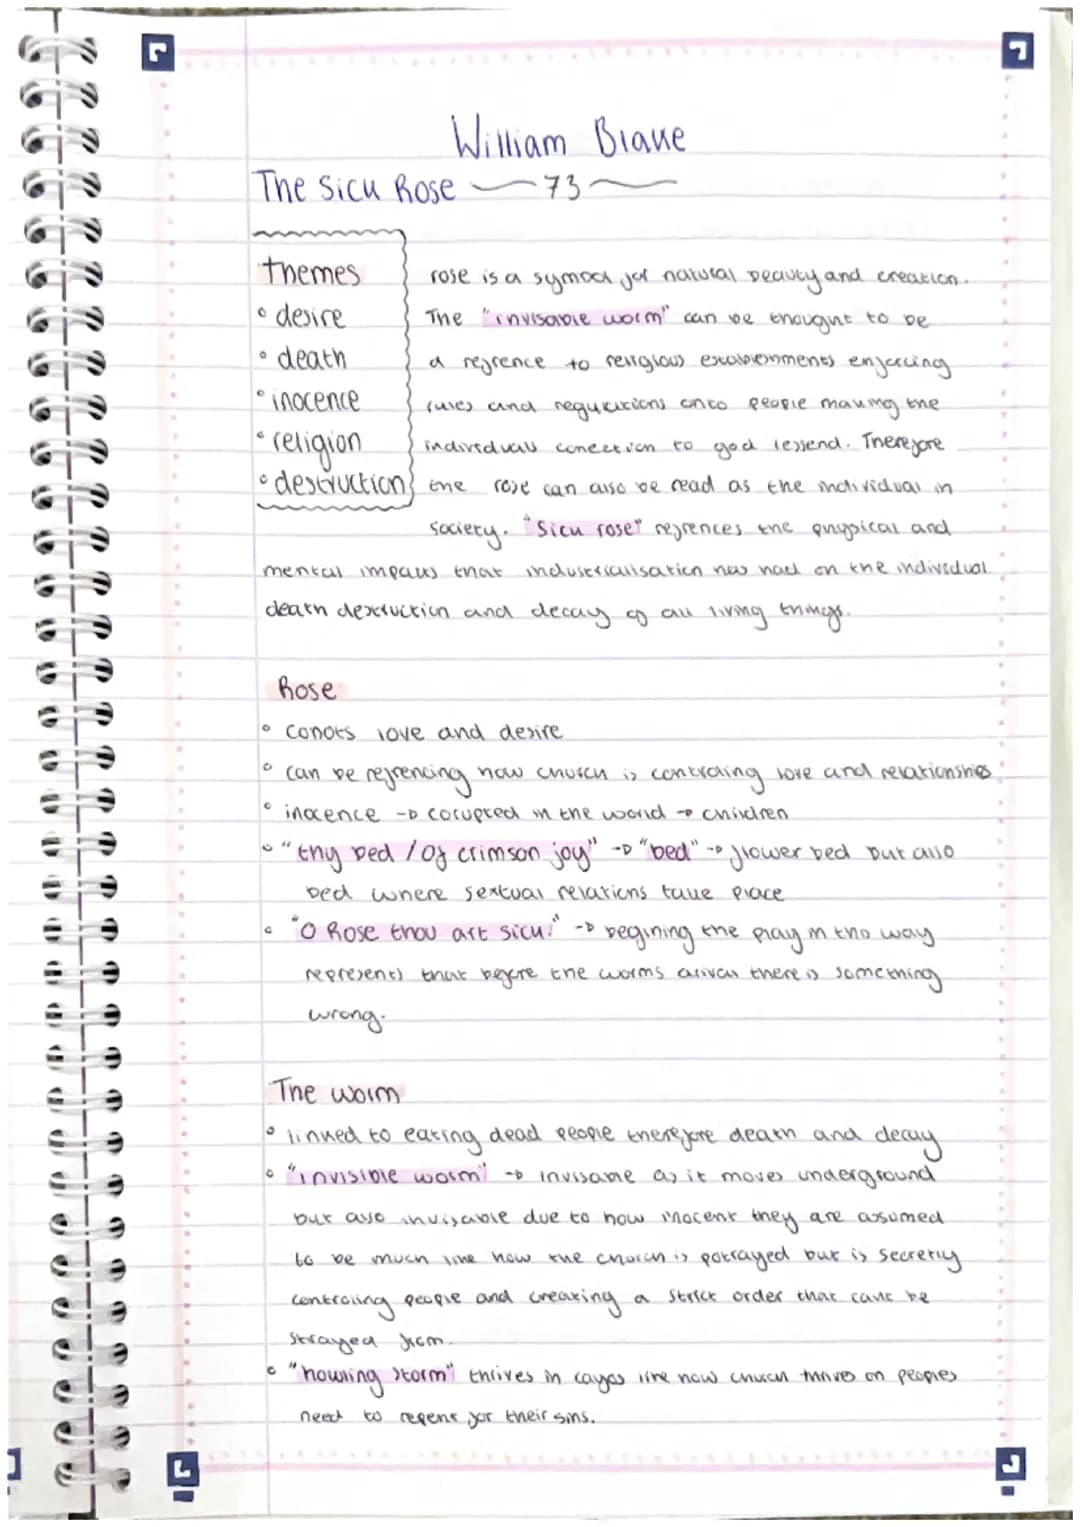 William Blake
The Sick Rose 73
Themes
• desire
• death
• inocence
• religion
• destruction
rose is a symbol for natural beauty and creation.
The "invisable worm" can be thought to be
a refrence to religious establishments enforcing
rules and regulations onto people making the
individuals conection to god lessend. Therefore
the rose can also be read as the individual in
society. "Sick rose" refrences the physical and
mental impacts that industrialisation has had on the individual
death destruction and decay of all living things.
Rose
• conots love and desire
• can be refrencing how church is controling love and relationships
• inocence -> corupted in the world -> children
• "thy bed / Of crimson joy" -> "bed" -> flower bed but also
bed where sextual relations take place
• "O Rose thou art sick!" -> begining the play in tho way
represents that before the worms arival there is something
wrong.
The worm
• linked to eating dead people therefore death and decay
• "invisible worm" -> invisable as it moves underground
but also invisable due to how inocent they are assumed
to be much like how the church is potrayed but is secretly
controling people and creating a strict order that cant be
strayed from.
• "howling storm" thrives in like how church thrives on peoples
need to repent for their sins.